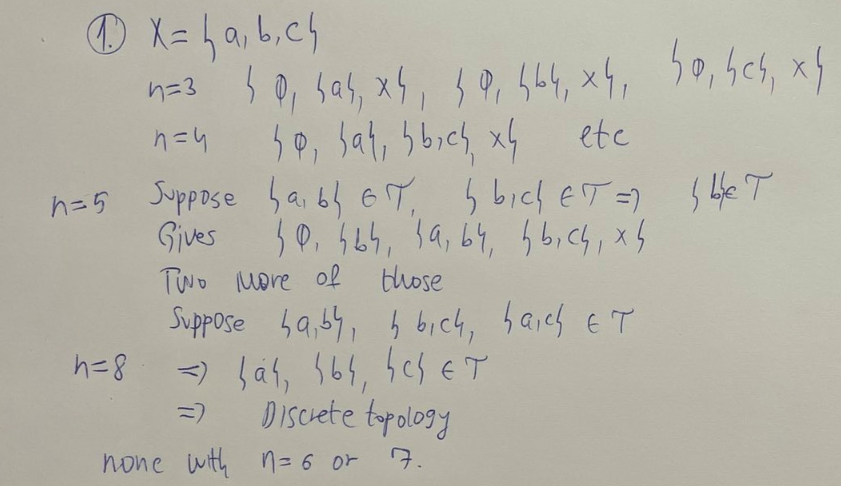 1. X = {a, b, c}
n=3 {φ, {a}, x}, {φ, {b}, x}, {φ, {c}, x}
n=4 {φ, {a}, {b,c}, x} etc
n=5 Suppose {a,b} ∈ T, {b,c} ∈ T ⇒ {b} ∈ T
Gives {φ, {b}, {a, b}, {b,c}, x}
Two more of those
Suppose {a,b}, {b,c}, {a,c} ∈ T
n=8 ⇒ {a}, {b}, {c} ∈ T
⇒ Discrete topology
none with n=6 or 7.